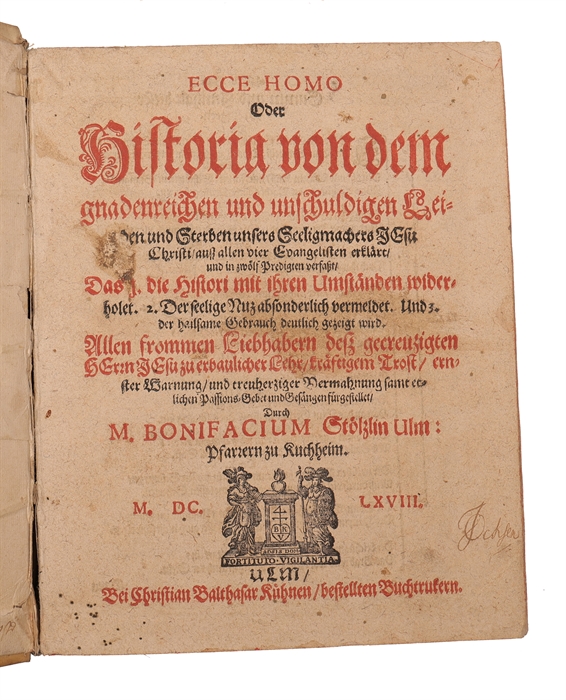 ECCE HOMO
Oder
Historia von dem
gnadenreichen und unschuldigen Lei-
den und Sterben unsers Seeligmachers JEsu
Christi/ auß allen vier Evangelisten erklärt/
und in zwölf Predigten verfaßt/
Das 1. die Histori mit ihren Umständen wider-
holet. 2. Der seelige Nuz absonderlich vermeldet. Und 3.
der hailsame Gebrauch deutlich gezeigt wird.
Allen frommen Liebhabern deß gecreuzigten
HErrn JEsu zu erbaulicher Lehr/ kräftigem Trost/ ern-
ster Warnung/ und treuherziger Vermahnung samt et-
lichen Passions-Gebet und Gesängen fürgestellet/
Durch
M. BONIFACIUM Stölzlin Ulm:
Pfarrern zu Kuchheim.
M. DC. LXVIII.
FORTITUTO · VIGILANTIA
ULM/
Bei Christian Balthasar Kühnen/ bestellten Buchtrukern.